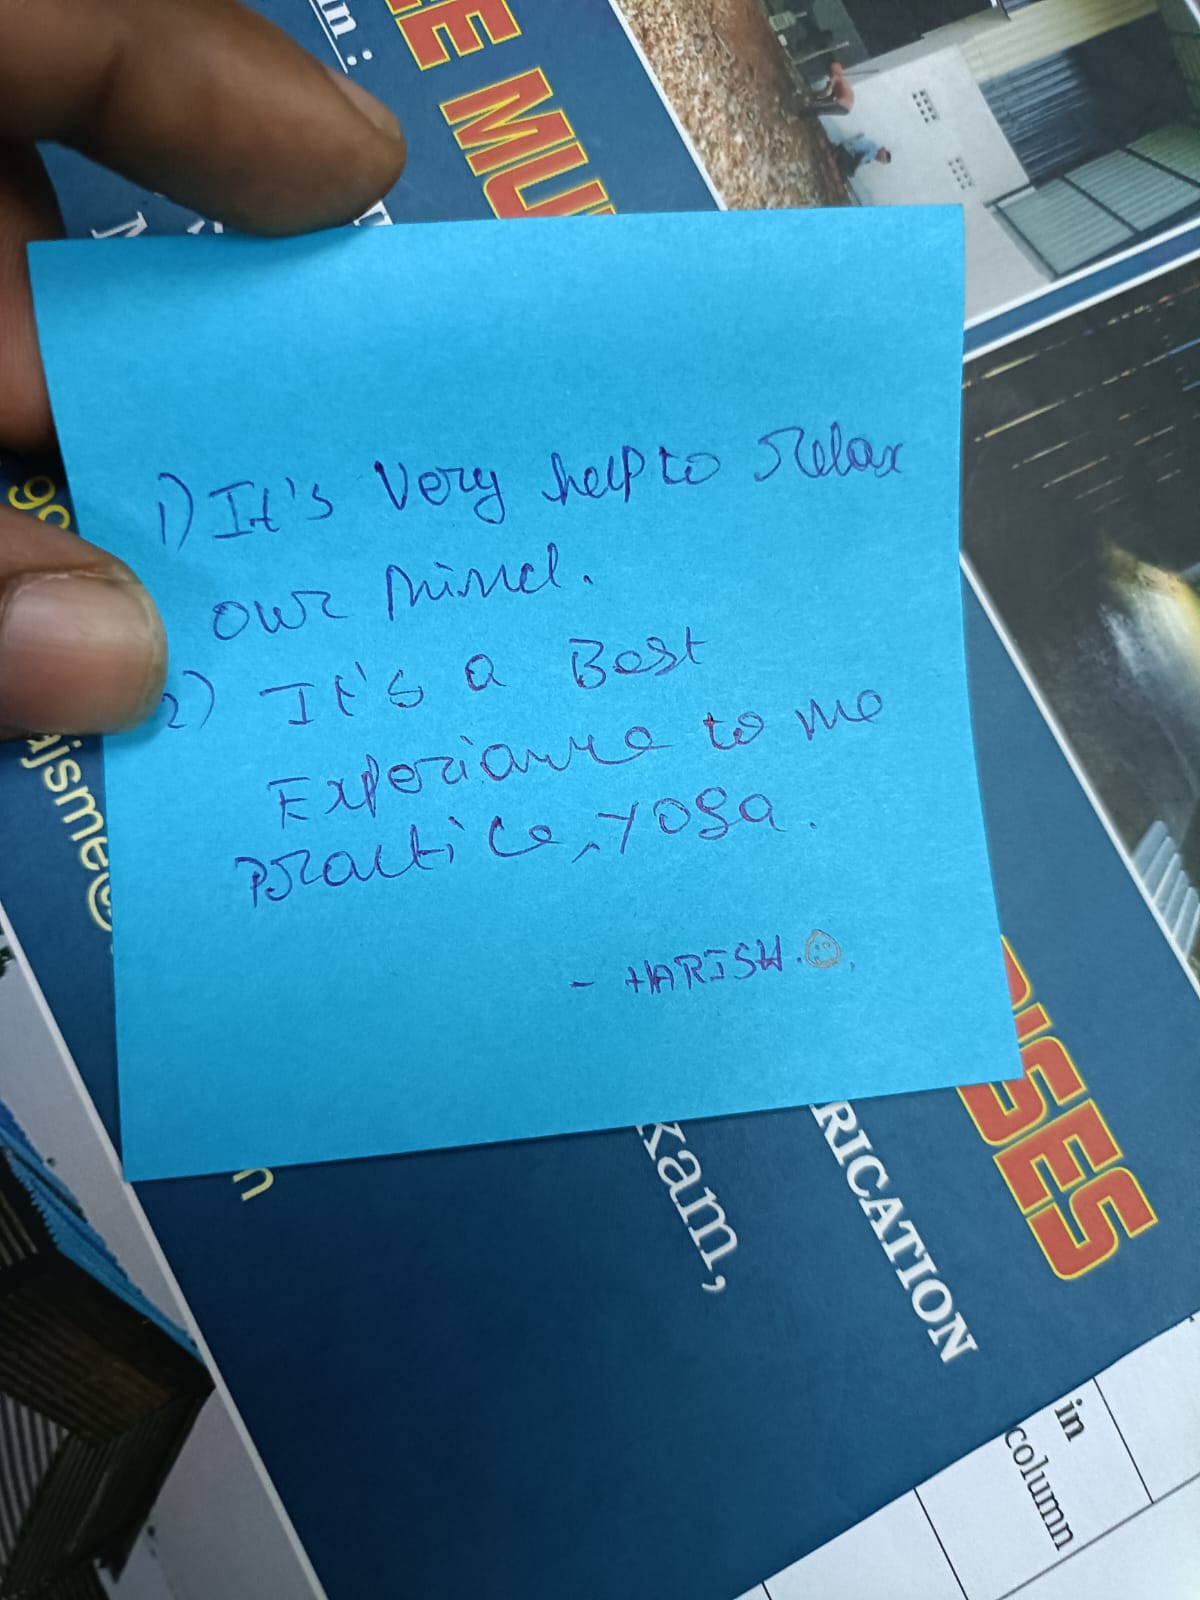 in :
EE MU
1) It's Very help to Relax
our mind.
2) It's a Best
Experiance to me
Practice, yoga.
- HARISH.
go
ajsme@
kam,
RICATION
RISES
in
column